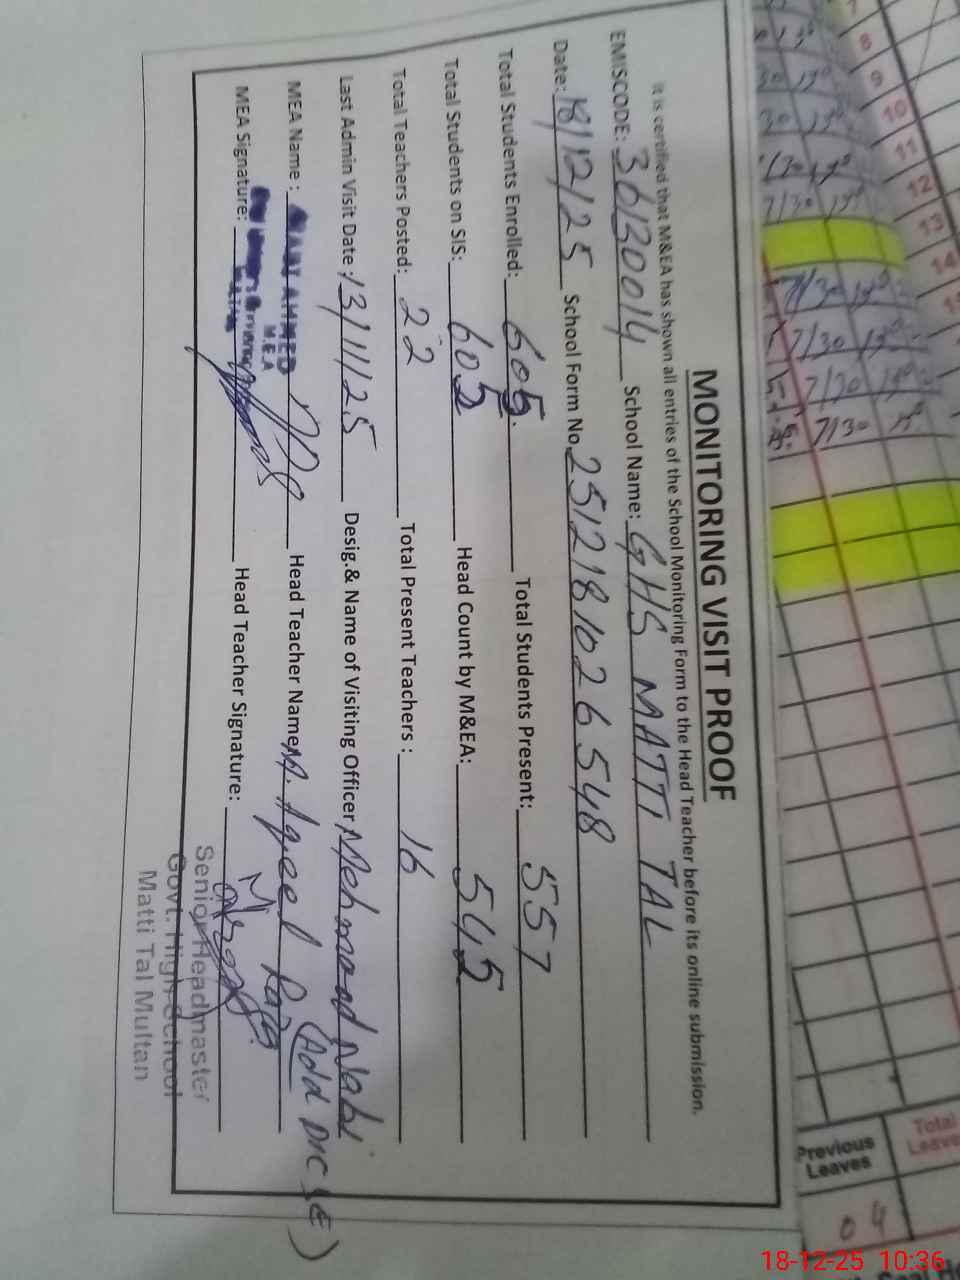 MONITORING VISIT PROOF
It is certified that M&EA has shown all entries of the School Monitoring Form to the Head Teacher before its online submission.
EMISCODE: 36120014 School Name: GHS MATTI TAL
Date: 18/12/25 School Form No. 2512181026548
Total Students Enrolled: 605 Total Students Present: 557
Total Students on SIS: 605 Head Count by M&EA: 545
Total Teachers Posted: 22 Total Present Teachers : 16
Last Admin Visit Date: 13/11/25 Desig.& Name of Visiting Officer Mehmood Nabi
(Add DIC SE)
MEA Name : AHMED Head Teacher Name M. Aqeel
M.E.A
MEA Signature: Head Teacher Signature:
Senior Headmaster
Govt. High School
Matti Tal Multan
7
8
9
10
11
12
13
14
7/30
7/30
7/30
7/30
7/30
Previous Leaves
Total Leave
04
18-12-25 10:36